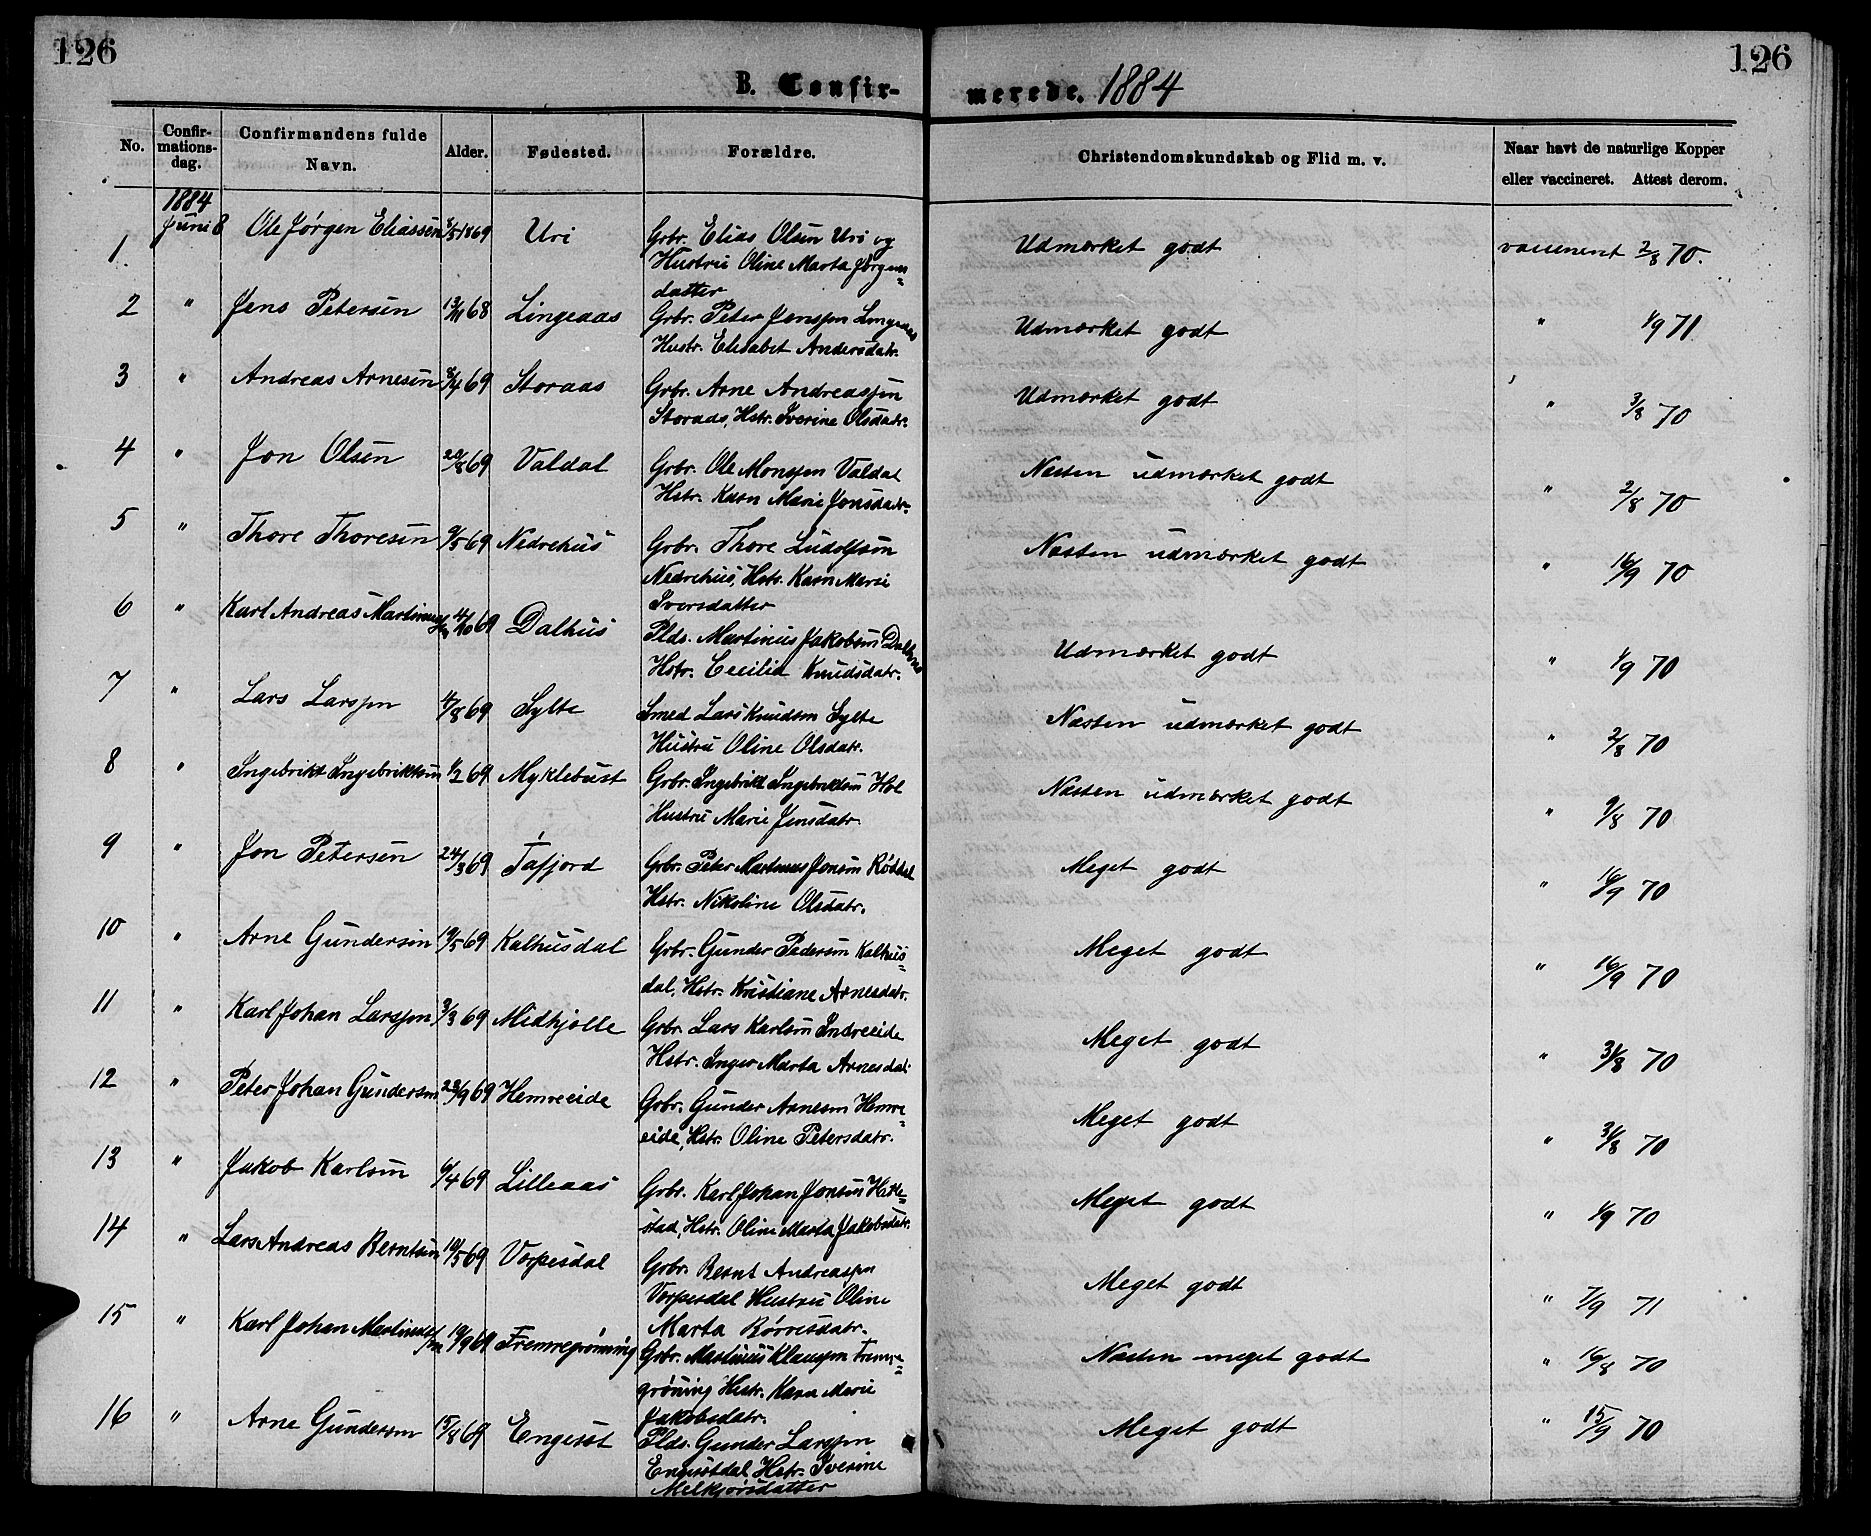 126
126
B. Confir-
merede. 1884
No.
Confir-
mations-
dag.
Confirmandens fulde
Navn.
Alder.
Fødested.
Forældre.
Christendomskundskab og Flid m. v.
Naar havt de naturlige Kopper
eller vaccineret. Attest derom.
1884
1 Juni 8 Ole Jørgen Eliassen 3/5 1869 Uri Grbr. Elias Olsen Uri og Udmærket godt vaccineret 2/8 70.
Hustru Oline Marta Jørgens=
datter
2 " Jens Petersen 13/11 68 Lingeaas Grbr. Peter Jenssen Lingeaas Udmærket godt " 1/9 71
Hustr. Elisabet Andersdatr.
3 " Andreas Arnesen 8/4 69 Storaas Grbr. Arne Andreassen Udmærket godt " 3/8 70
Storaas, Hstr. Iverine Olsdatr.
4 " Jon Olsen 20/8 69 Valdal Grbr. Ole Monssen Valdal Næsten udmærket godt " 2/8 70
Hstr. Karn Marie Jonsdatr.
5 " Thore Thoresen 9/5 69 Nedrehus Grbr. Thore Ludolfsen Næsten udmærket godt " 16/9 70
Nedrehus, Hstr. Karn Marie
Iversdatter
6 " Karl Andreas Martinussen 4/10 69 Dalhus Plds. Martinus Jakobsen Dalhus Udmærket godt " 1/9 70
Hstr. Cecilia Knudsdatr.
7 " Lars Larssen 17/8 69 Sylte Smed Lars Knudsen Sylte Næsten udmærket godt " 2/8 70
Hustru Oline Olsdatr.
8 " Ingebrikt Ingebriktsen 1/2 69 Myklebust Grbr. Ingebrikt Ingebriktsen Hol Næsten udmærket godt " 9/8 70
Hustru Marie Jensdatr.
9 " Jon Petersen 24/3 69 Tafjord Grbr. Peter Martinus Jonsen Røddal Meget godt " 16/9 70
Hstr. Nikoline Olsdatr.
10 " Arne Gundersen 19/5 69 Kalhusdal Grbr. Gunder Pedersen Kalhus= Meget godt " 16/9 70
dal, Hstr. Kristiane Arnesdatr.
11 " Karl Johan Larssen 3/3 69 Midhjølle Grbr. Lars Karlsen Indreeide Meget godt " 31/8 70
Hstr. Inger Marta Arnesdat.
12 " Peter Johan Gundersen 23/9 69 Hemreeide Grbr. Gunder Arnesen Hemre= Meget godt " 31/8 70
eide, Hstr. Oline Petersdatr.
13 " Jakob Karlsen 6/4 69 Lilleaas Grbr. Karl Johan Jonsen Hatle= Meget godt " 1/9 70
stad, Hstr. Oline Marta Jakobsdatr.
14 " Lars Andreas Berntsen 10/5 69 Vorpesdal Grbr. Bernt Andreassen Meget godt " 7/9 71
Vorpesdal Hustru Oline
Marta Børresdatr.
15 " Karl Johan Martinussen 19/9 69 Fremregrøning Grbr. Martinus Klaussen Fremre= Næsten meget godt " 16/8 70
grøning Hstr. Karn Marie
Jakobsdatr.
16 " Arne Gundersen 15/8 69 Engeset Plds. Gunder Larssen Meget godt " 15/9 70
Engesetdal, Hstr. Iverine
Melkjørsdatter